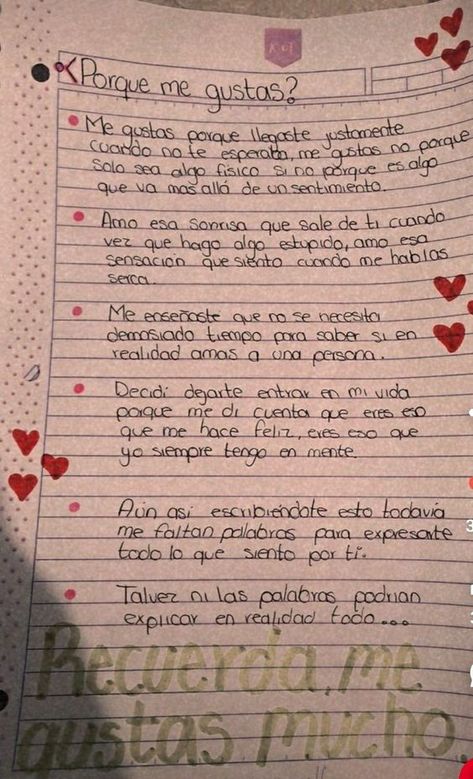 ¿Porque me gustas?
Me gustas porque llegaste justamente
cuando no te esperaba, me gustas no porque
solo sea algo fisico si no porque es algo
que va mas allá de un sentimiento.
Amo esa sonrisa que sale de ti cuando
vez que hago algo estupido, amo esa
sensación que siento cuando me hablas
serca.
Me enseñaste que no se necesita
demasiado tiempo para saber si en
realidad amas a una persona.
Decidi dejarte entrar en mi vida
porque me di cuenta que eres eso
que me hace feliz, eres eso que
yo siempre tengo en mente.
Aún asi escribiéndote esto todavia
me faltan palabras para expresarte
todo lo que siento por ti.
Talvez ni las palabras podrian
explicar en realidad todo...
Recuerda, me
gustas mucho.